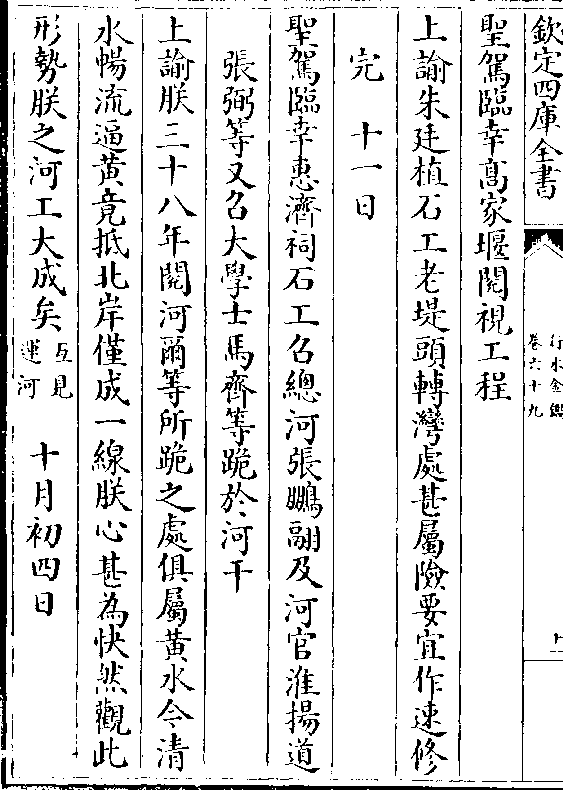 欽定四庫全書
行水金鑑
卷六十九
聖駕臨幸髙家堰閱視工程
上諭朱廷植石工老堤頭轉灣處甚屬險要宜作速修
完　十一日
聖駕臨幸惠濟祠石工召總河張鵬翮及河官淮揚道
張弼等又召大學士馬齊等跪於河干
上諭朕三十八年閱河爾等所跪之處俱屬黄水今清
水暢流逼黄竟抵北岸僅成一線朕心甚為快然觀此
形勢朕之河工大成矣互見運河　十月初四日